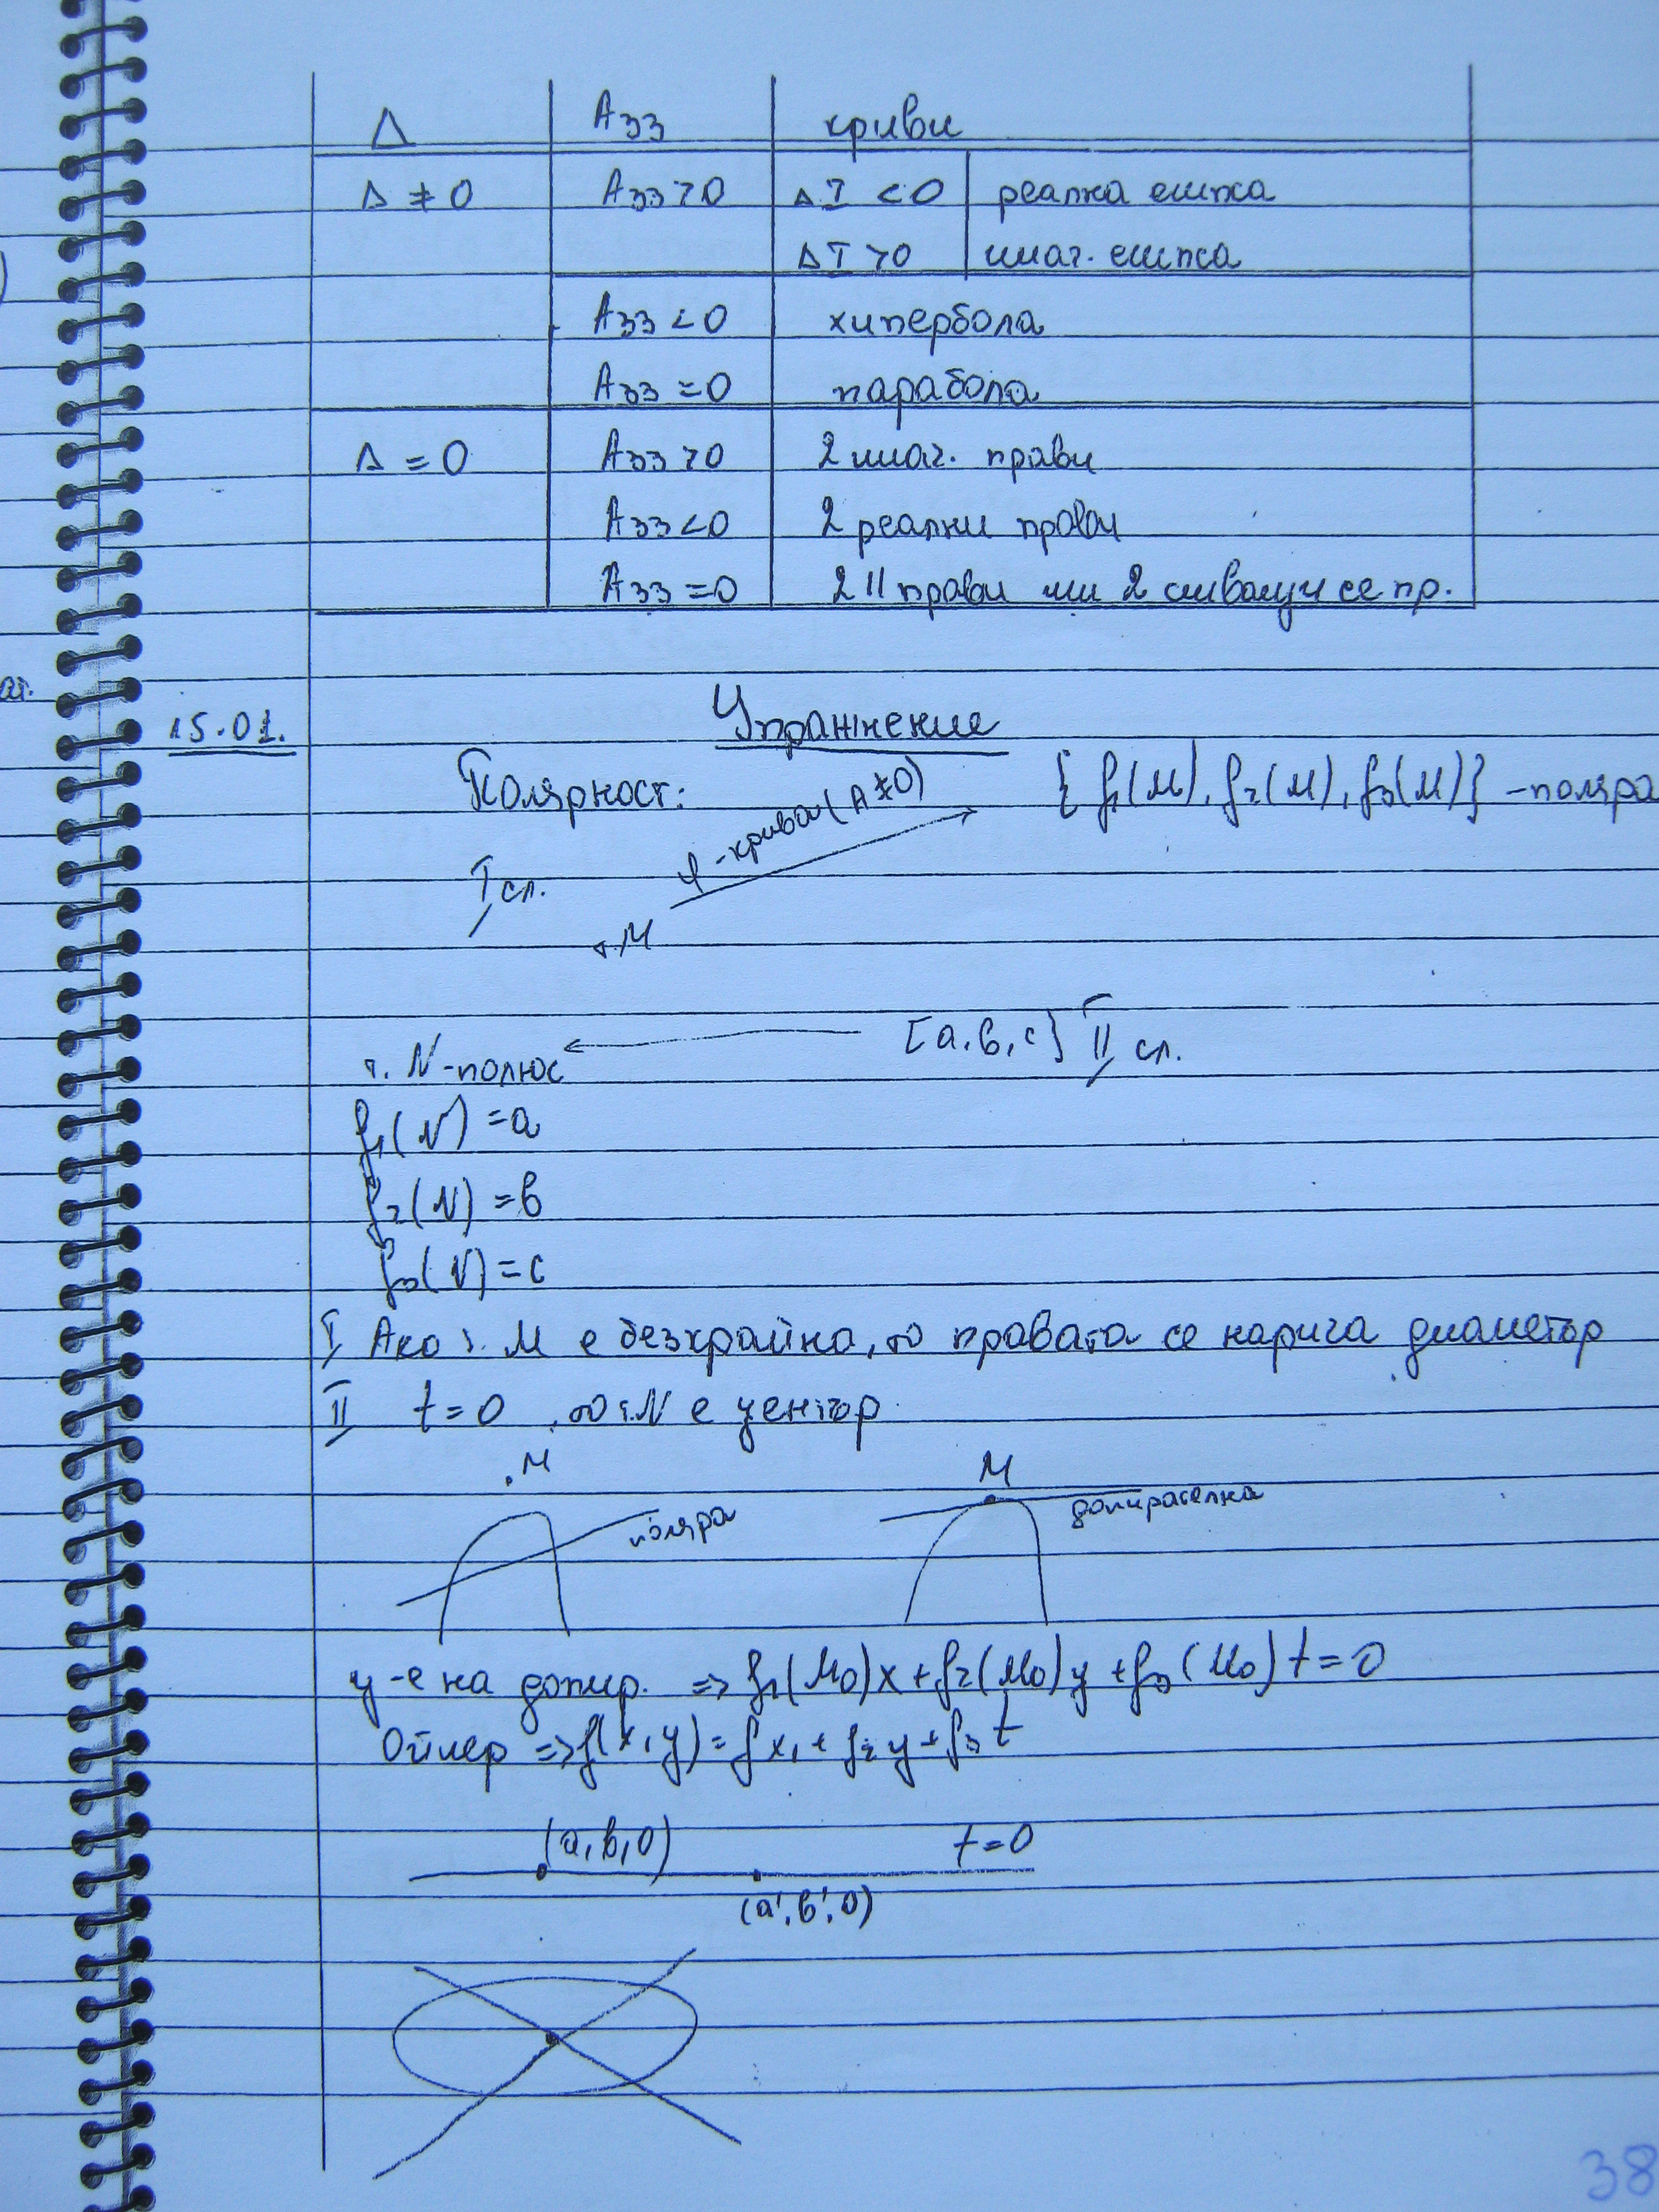 Δ A33 криви
Δ ≠ 0 A33 > 0 Δ I < 0 реална елипса
Δ I > 0 имаг. елипса
A33 < 0 хипербола
A33 = 0 парабола
Δ = 0 A33 > 0 2 имаг. прави
A33 < 0 2 реални прави
A33 = 0 2 || прави или 2 сливащи се пр.
15.01. Упражнение
Полярност: φ-крива (A ≠ 0) { f1(M), f2(M), f3(M)} - поляра
I сл.
т. M
[a, b, c] II сл.
т. N - полюс
f1(N) = a
f2(N) = b
f3(N) = c
I Ако т. M е безкрайна, то правата се нарича диаметър
II t = 0, то т. N е център.
.M M
поляра допирателна
у-е на допир. => f1(M0)x + f2(M0)y + f3(M0)t = 0
Ойлер => f(x, y) = f x1 + f2 y + f3 t
(a, b, 0) t = 0
(a', b', 0)
38